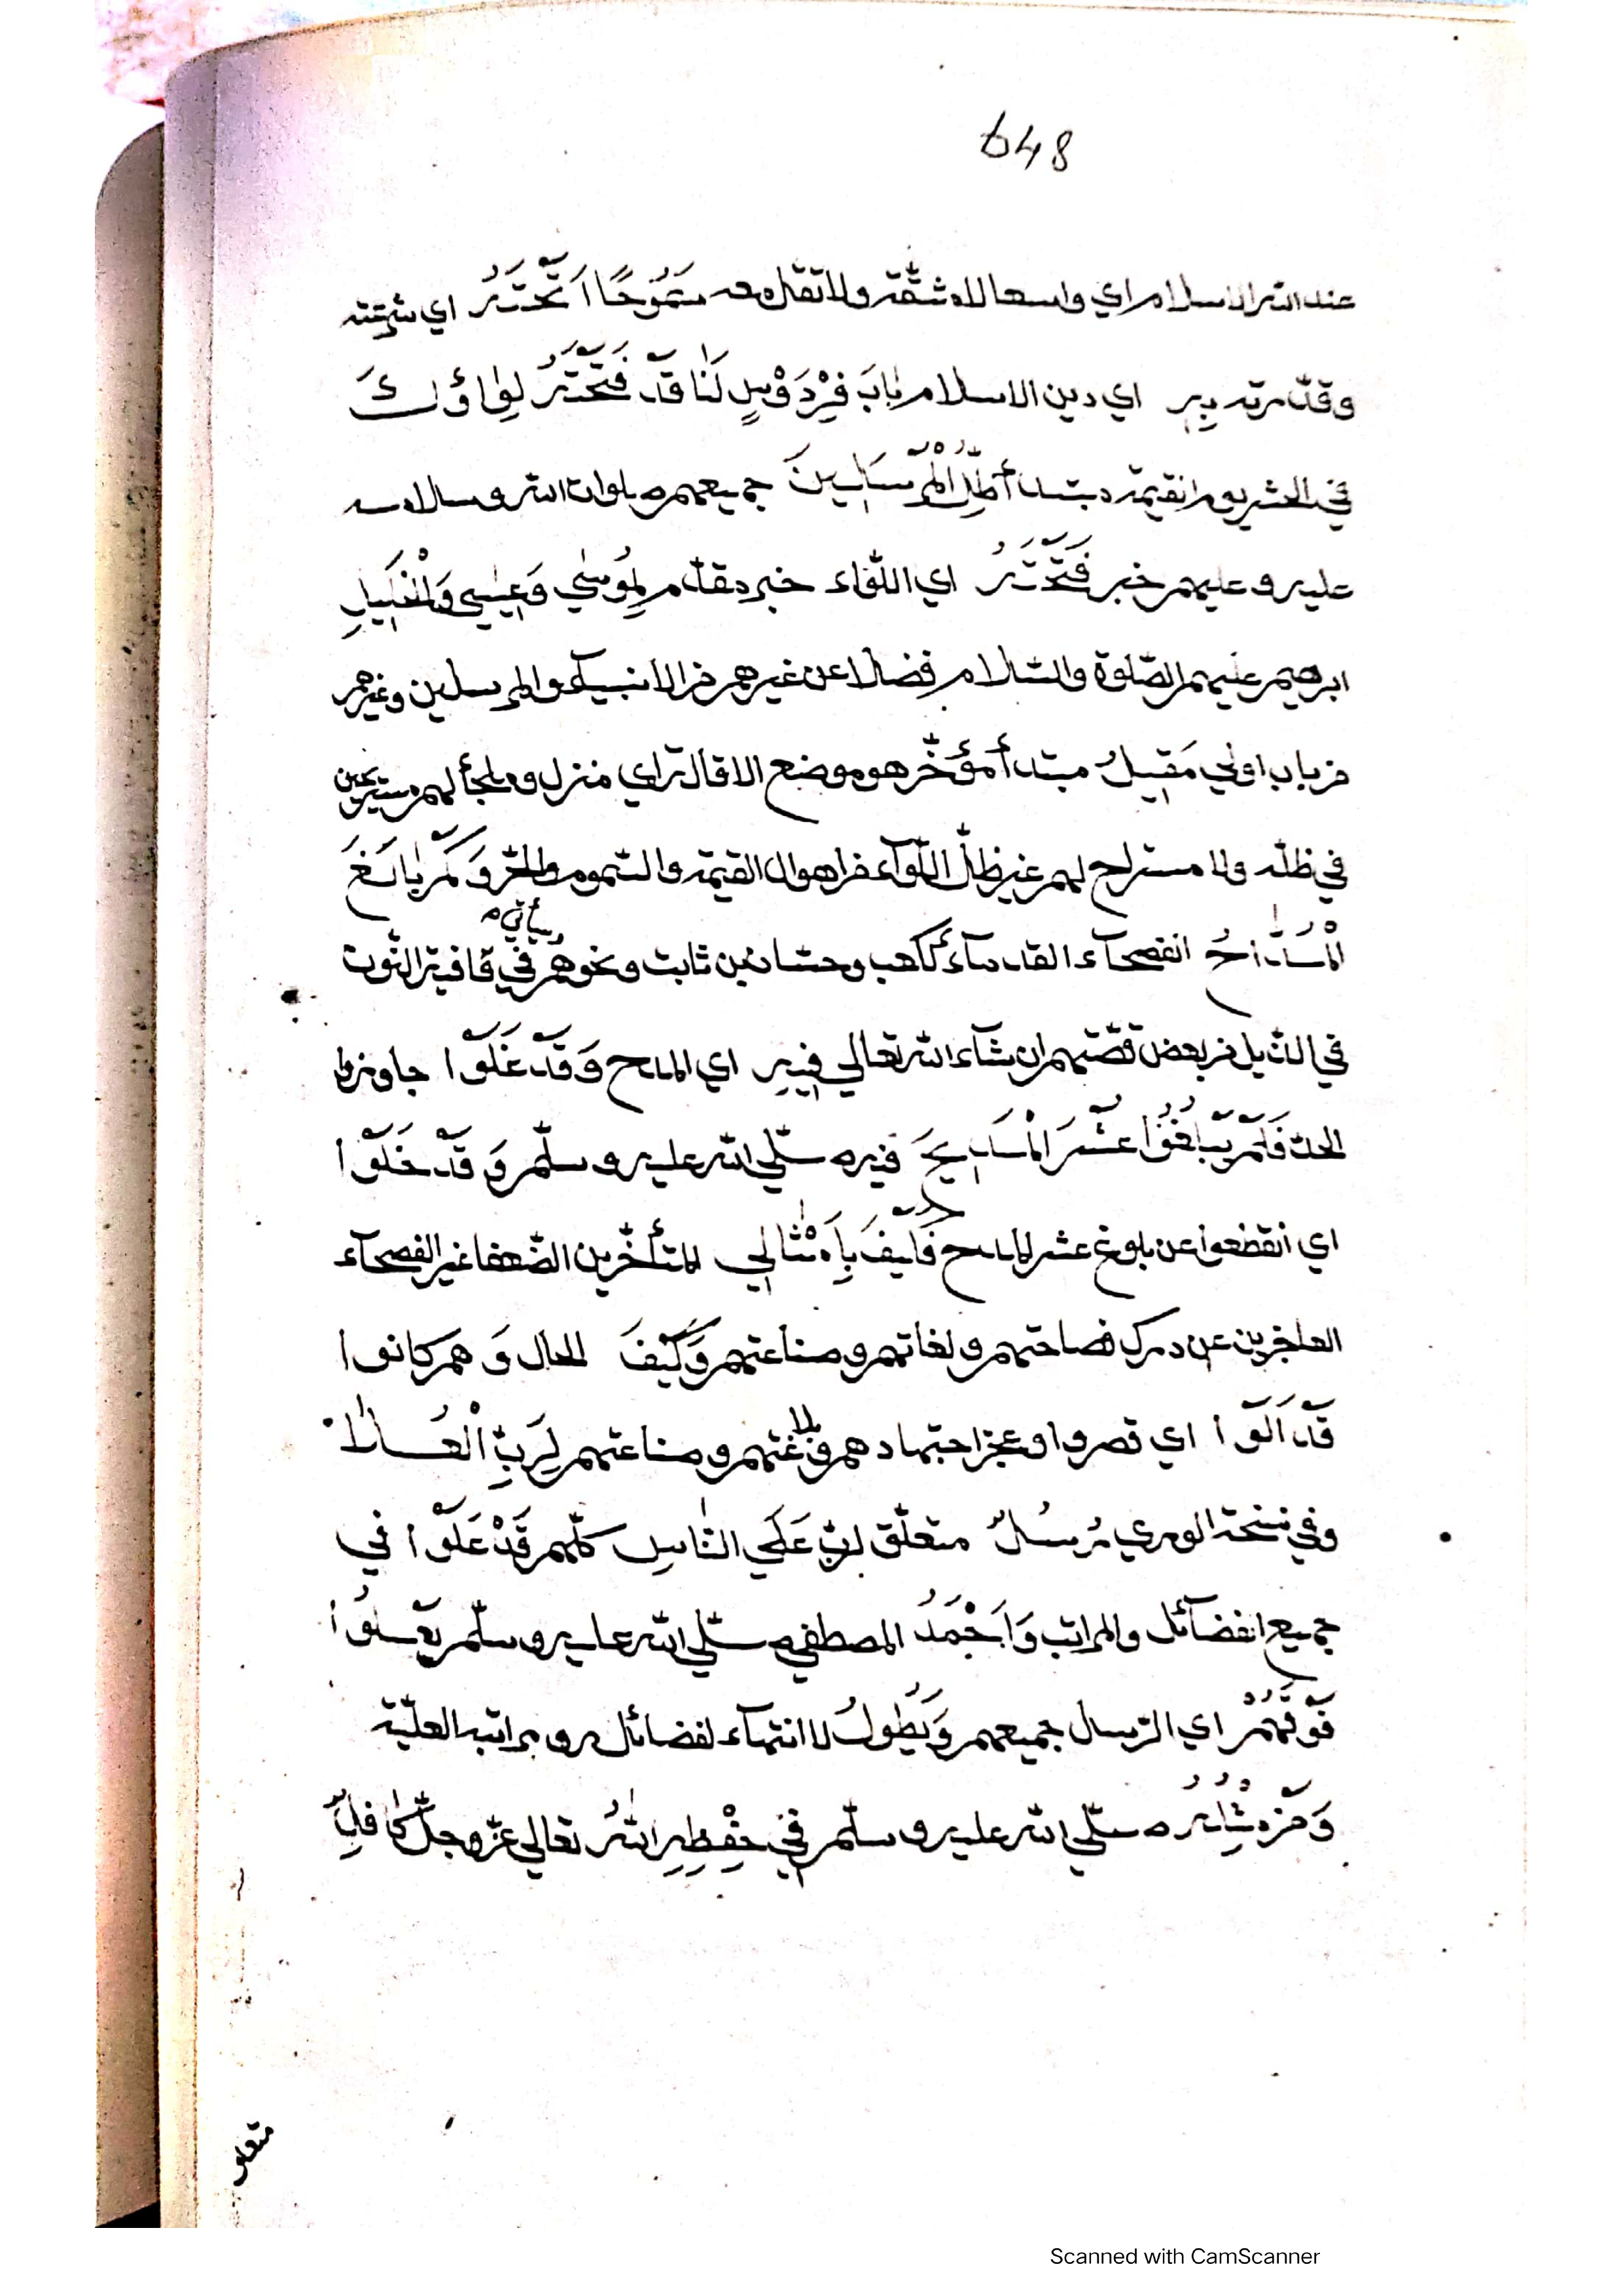 648
عند الله الاسلام اي واسعا لا مشقّة ولا ثقل معه سَمُوحًا اَتَّحْتَهُ اي شرعته
وقدّرته بِهِ اي دين الاسلام بَابَ فِرْدَوْسٍ لَنَا قَدْ فَتَحْتَهُ لِوَاؤُكَ
في الحشر يوم القيمة مبتدأ ظِلُّ الْمُرْسَلِينَ جميعهم صلوات الله وسلامه
عليه وعليهم خبر فَتَحْتَهُ اي اللّواء خبر مقدّم لِمُوسٰي وَعِيسٰي وَالْخَلِيلِ
ابرهيم عليهم الصّلوة والسّلام فضلا عن غيرهم من الانبيآء والمرسلين وغيرهم
من باب اولي مَقِيلُ مبتدأ مؤخّر هو موضع الاقالة اي منزل وملجأ لهم مستريحين
في ظلّه ولا مستراح لهم غير ظلّ اللّوآء من اهوال القيمة والسّموم والحرّ وَكَمْ بَالَغَ
الْمُدَّاحُ الفصحآء القدمآء ككعب وحسّان بن ثابت ونحوهم وسيأتي في قافية النّون
في الذّيل من بعض قصّتهم ان شآء الله تعالي فِيهِ اي المدح وَقَدْ غَلَوْا جاوزوا
الحدّ فَلَمْ يَبْلُغُوا عُشْرَ الْمَدِيحَ فيه صلّي الله عليه وسلّم وَقَدْ خَلَوْا
اي انقطعوا عن بلوغ عشر المدح فَكَيْفَ بِاَمْثَالِي المتأخّرين الضّعفا غير الفصحآء
العاجزين عن درك فصاحتهم ولغاتهم وصناعتهم وَكَيْفَ الحال وَ هم كانوا
قَدْ اَلَوْا اي قصروا وعجز اجتهادهم وبلاغتهم وصناعتهم لِرَبِّ الْعُلَا
وفي نسخة الوتري مُرْسَلٌ متعلّق لربّ عَلَي النَّاسِ كلّهم قَدْ عَلَوْا في
جميع الفضآئل والمراتب وَاَحْمَدُ المصطفي صلّي الله عليه وسلّم يَعْلُوا
فَوْقَهُمْ اي الرّسل جميعهم وَيَطُولُ لا انتهآء لفضائله ومراتبه العليّة
وَمَنْ مِثْلُهُ صلّي الله عليه وسلّم فِي حِفْظِهِ اللّٰهُ تعالي عزّ وجلّ كَافِلٌ
متعلق
Scanned with CamScanner